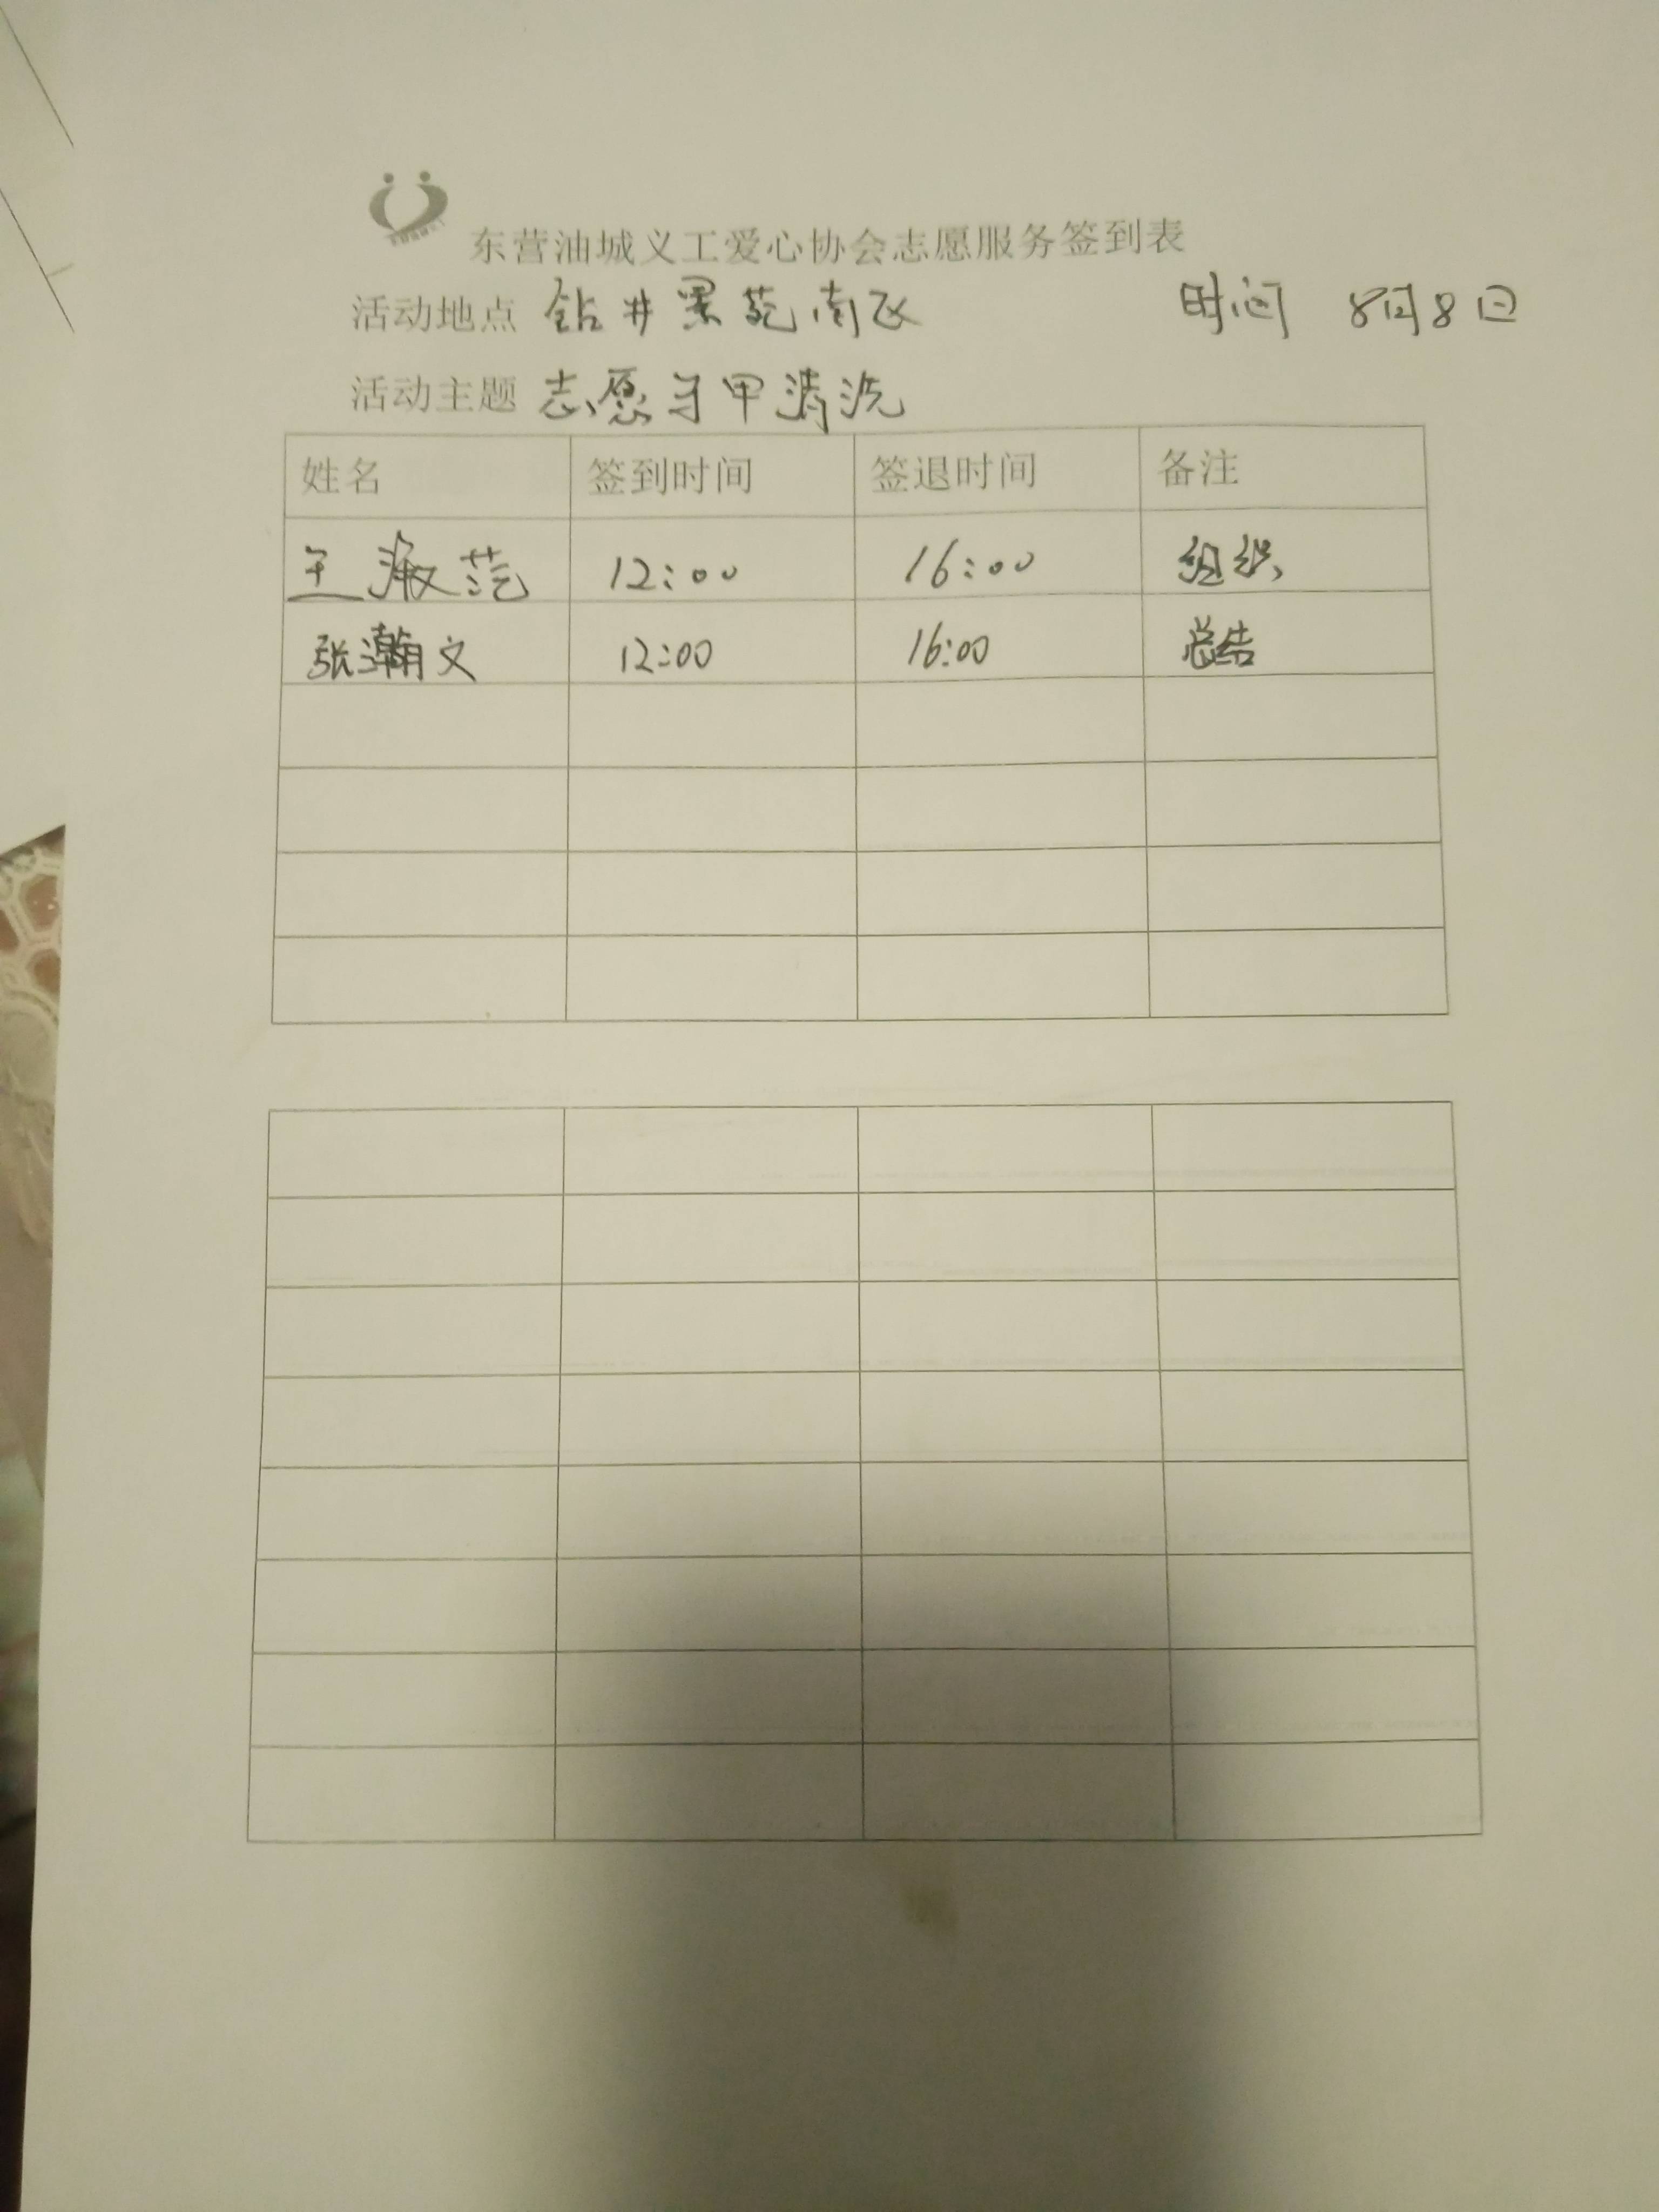 东营油城义工爱心协会志愿服务签到表
活动地点 钻井景苑南区 时间 8月8日
活动主题 志愿马甲清洗
姓名 签到时间 签退时间 备注
王淑范 12:00 16:00 组织
张瀚文 12:00 16:00 总结